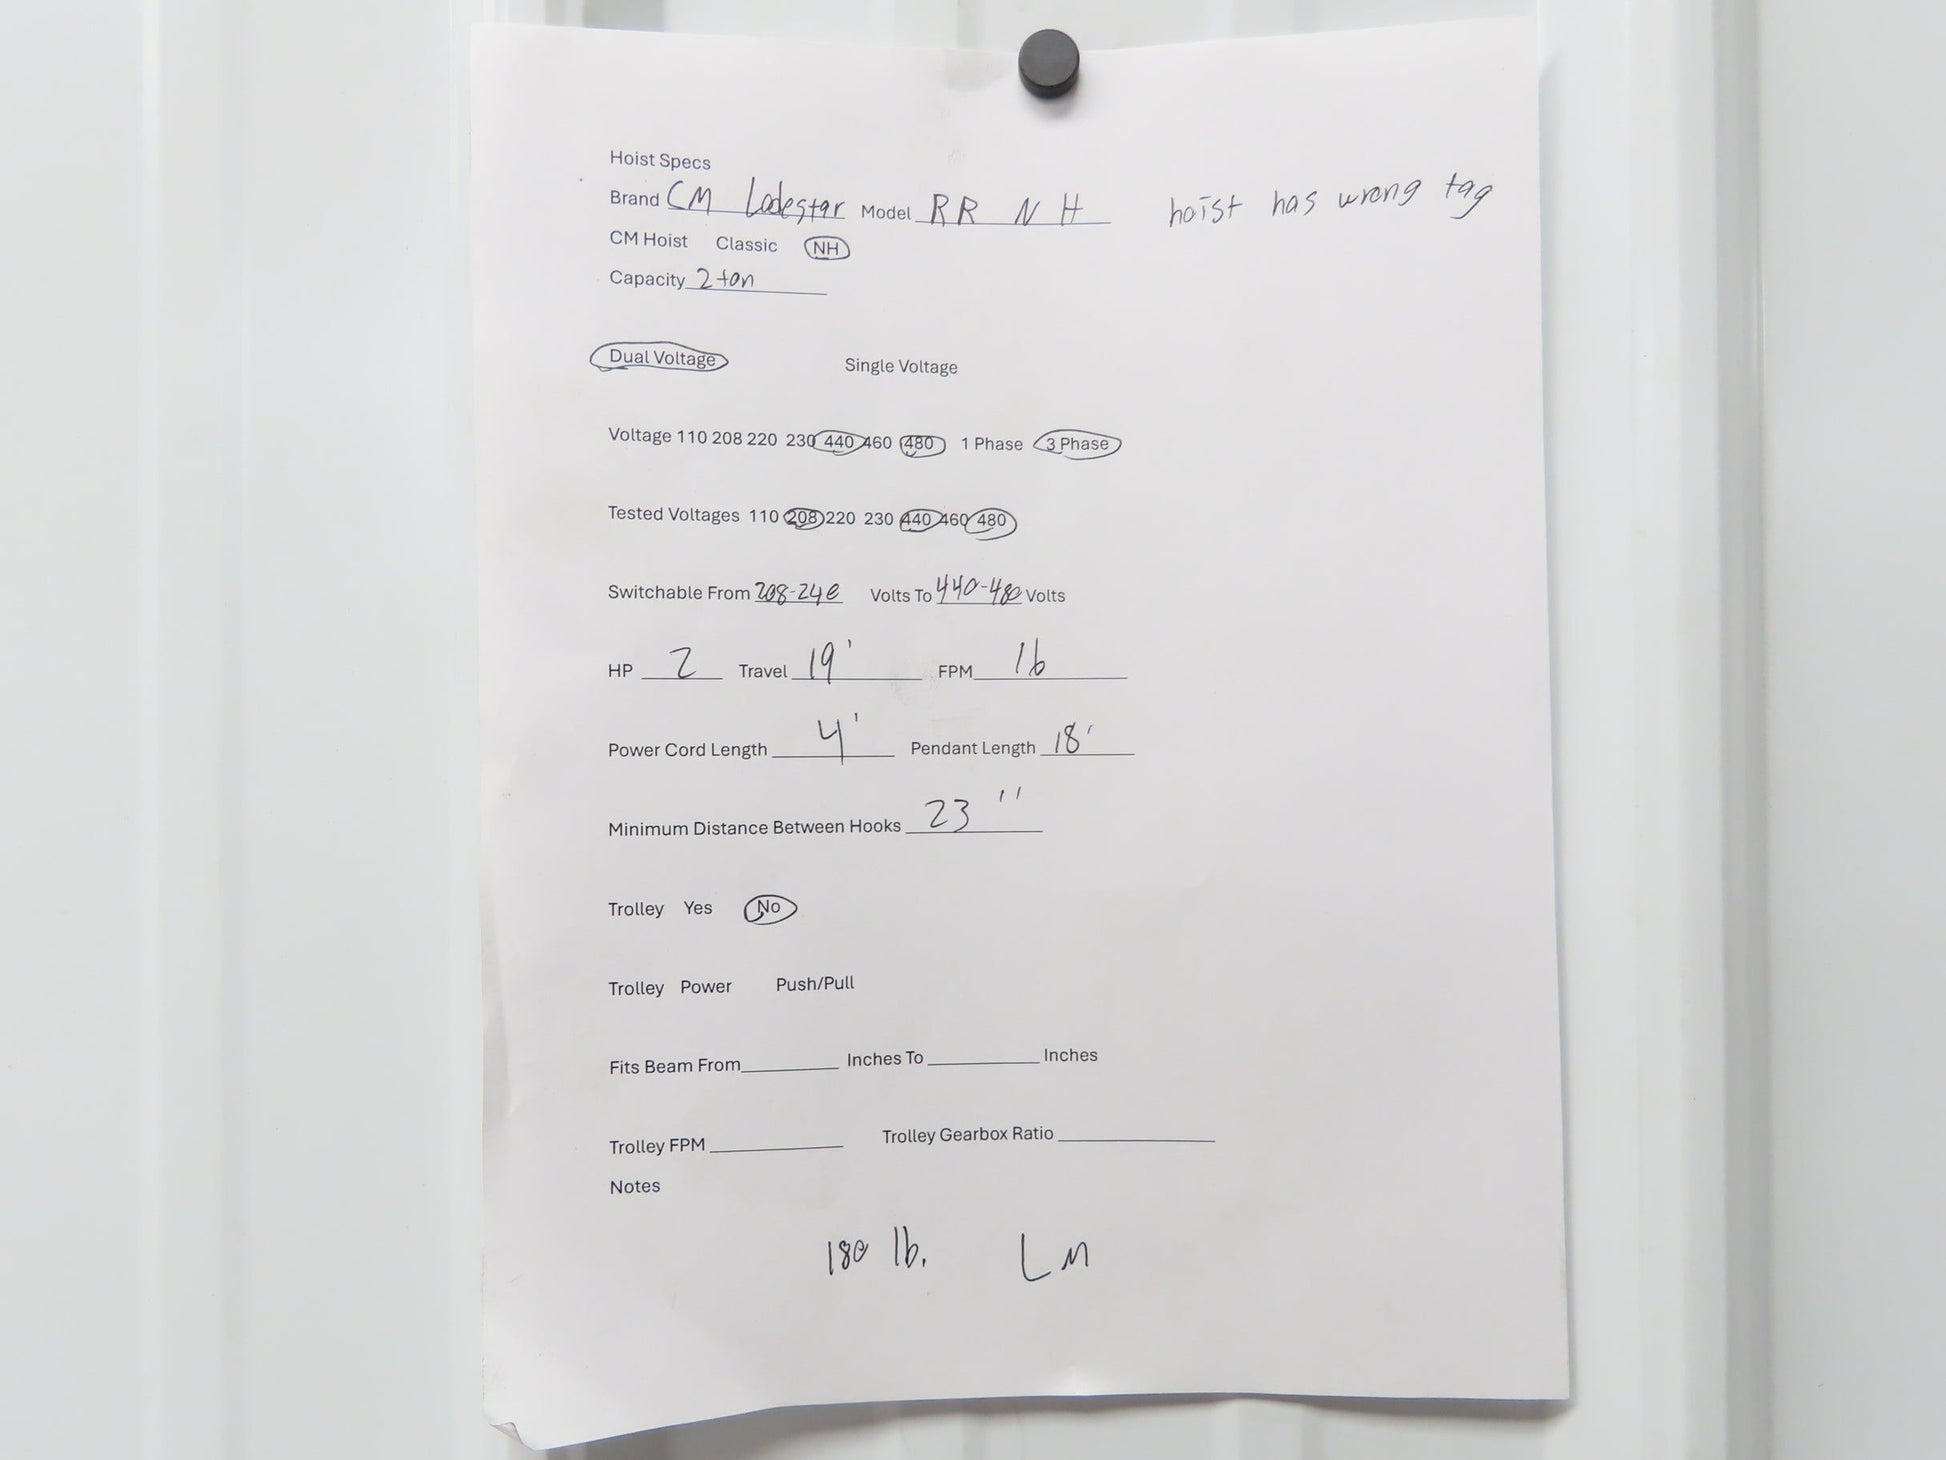 Hoist Specs
Brand CM Lodestar Model RR NH hoist has wrong tag
CM Hoist Classic NH
Capacity 2 ton
Dual Voltage Single Voltage
Voltage 110 208 220 230 440 460 480 1 Phase 3 Phase
Tested Voltages 110 208 220 230 440 460 480
Switchable From 208-240 Volts To 440-480 Volts
HP 2 Travel 19' FPM 16
Power Cord Length 4' Pendant Length 18'
Minimum Distance Between Hooks 23''
Trolley Yes No
Trolley Power Push/Pull
Fits Beam From Inches To Inches
Trolley FPM Trolley Gearbox Ratio
Notes
180 lb. LM